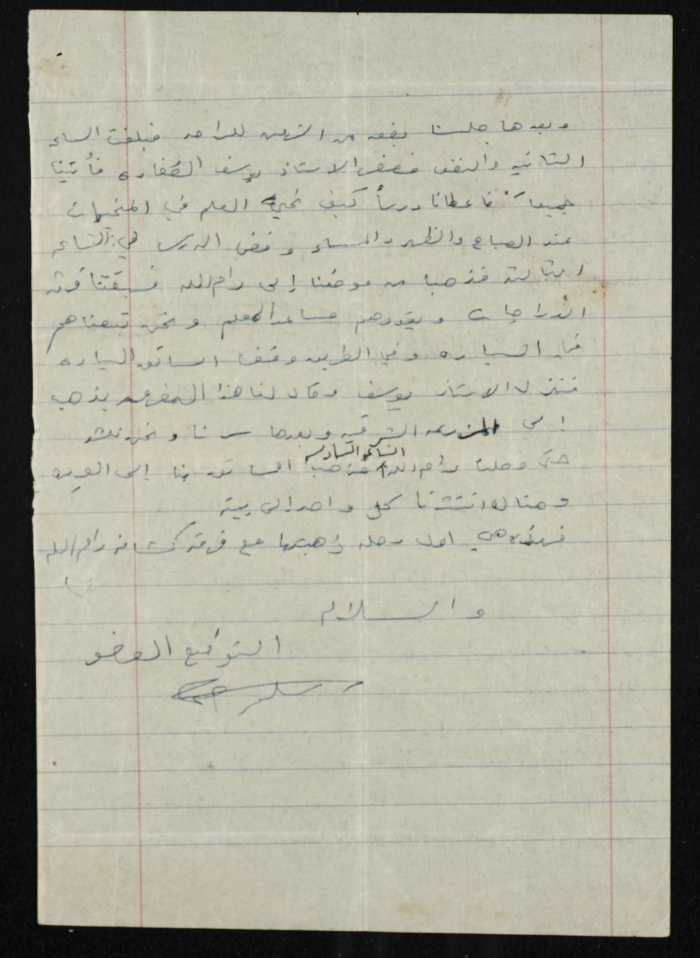 وبعدها جلسنا بضعة من الزمن للراحة فبلغت الساعة
الثانيه والنصف فنهض الاستاذ يوسف الصفارة فأتينا
جميعاً فاعطانا درساً كيف نحيي العلم في المخيمات
عند الصباح والظهر والمساء وفض الدرس في الساعة
الثالثة فذهبنا من موضعنا إلى رام الله فسبقتنا فرقة
الدراجات ويقودهم مساعد المعلم ونحن تبعناهم
في السياره وفي الطريق وقفت بنا السياره
فنزل الاستاذ يوسف وقال لنا هذا يذهب
إلى المزرعه الشرقيه وبعدها سرنا ونحن ننشد
حتى وصلنا رام الله الساعة السادسه فذهب بنا إلى
وهنالك انتشرنا كل واحد إلى بيته
فهذه هي اول رحلة ذهبتها مع فرقة كشافة رام الله
والسلام
التوقيع العضو